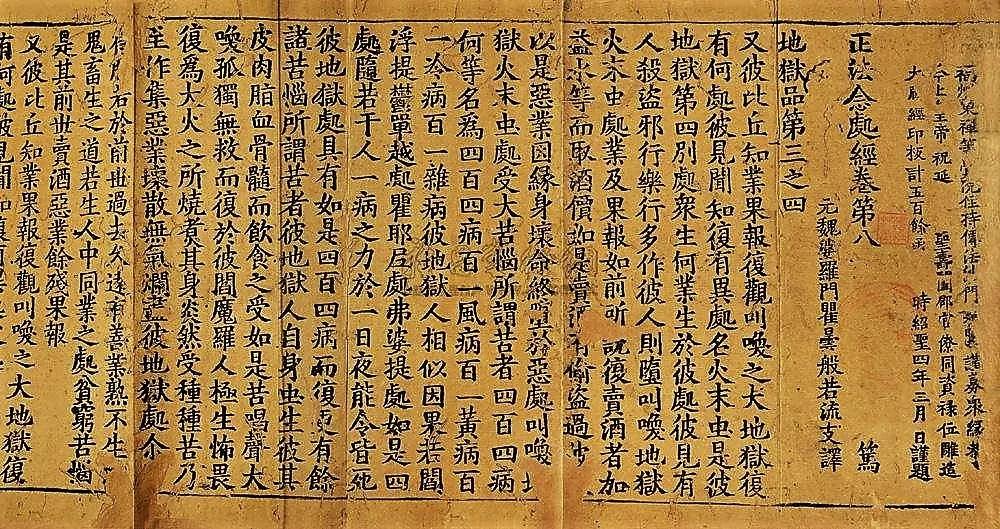 福州東禪等覺院住持傳法沙門 謹募衆緣恭
今上 皇帝祝延 聖壽國郡官僚同資祿位雕造
大藏經印板計五百餘函 時紹聖四年三月 日謹題
正法念處經卷第八 篤
元魏婆羅門瞿曇般若流支譯
地獄品第三之四
又彼比丘知業果報復觀叫喚之大地獄復
有何處彼見聞知復有異處名火末虫是彼
地獄第四別處衆生何業生於彼處彼見有
人殺盜邪行樂行多作彼人則墮叫喚地獄
火末虫處業及果報如前所說復賣酒者加
益水等而取酒價如是賣酒有偷盜過
以是惡業因縁身壞命終墮於惡處叫喚地
獄火末虫處受大苦惱所謂苦者四百四病
何等名爲四百四病百一風病百一黃病百
一冷病百一雜病彼地獄人相似因果若閻
浮提鬱單越處瞿耶尼處弗婆提處如是四
處隨若干人一病之力於一日夜能令皆死
彼地獄處具有如是四百四病而復更有餘
諸苦惱所謂苦者彼地獄人自身虫生彼其
皮肉脂血骨髓而飲食之受如是苦唱聲大
喚孤獨無救而復於彼閻魔羅人極生怖畏
復爲大火之所燒煑其身炎然受種種苦乃
至作集惡業壞散無氣爛盡彼地獄處尒
右於前世過去久遠有善業熟不生
鬼畜生之道若生人中同業之處貧窮苦惱
是其前世賣酒惡業餘殘果報
又彼比丘知業果報復觀叫喚之大地獄復
有何處彼見聞知復